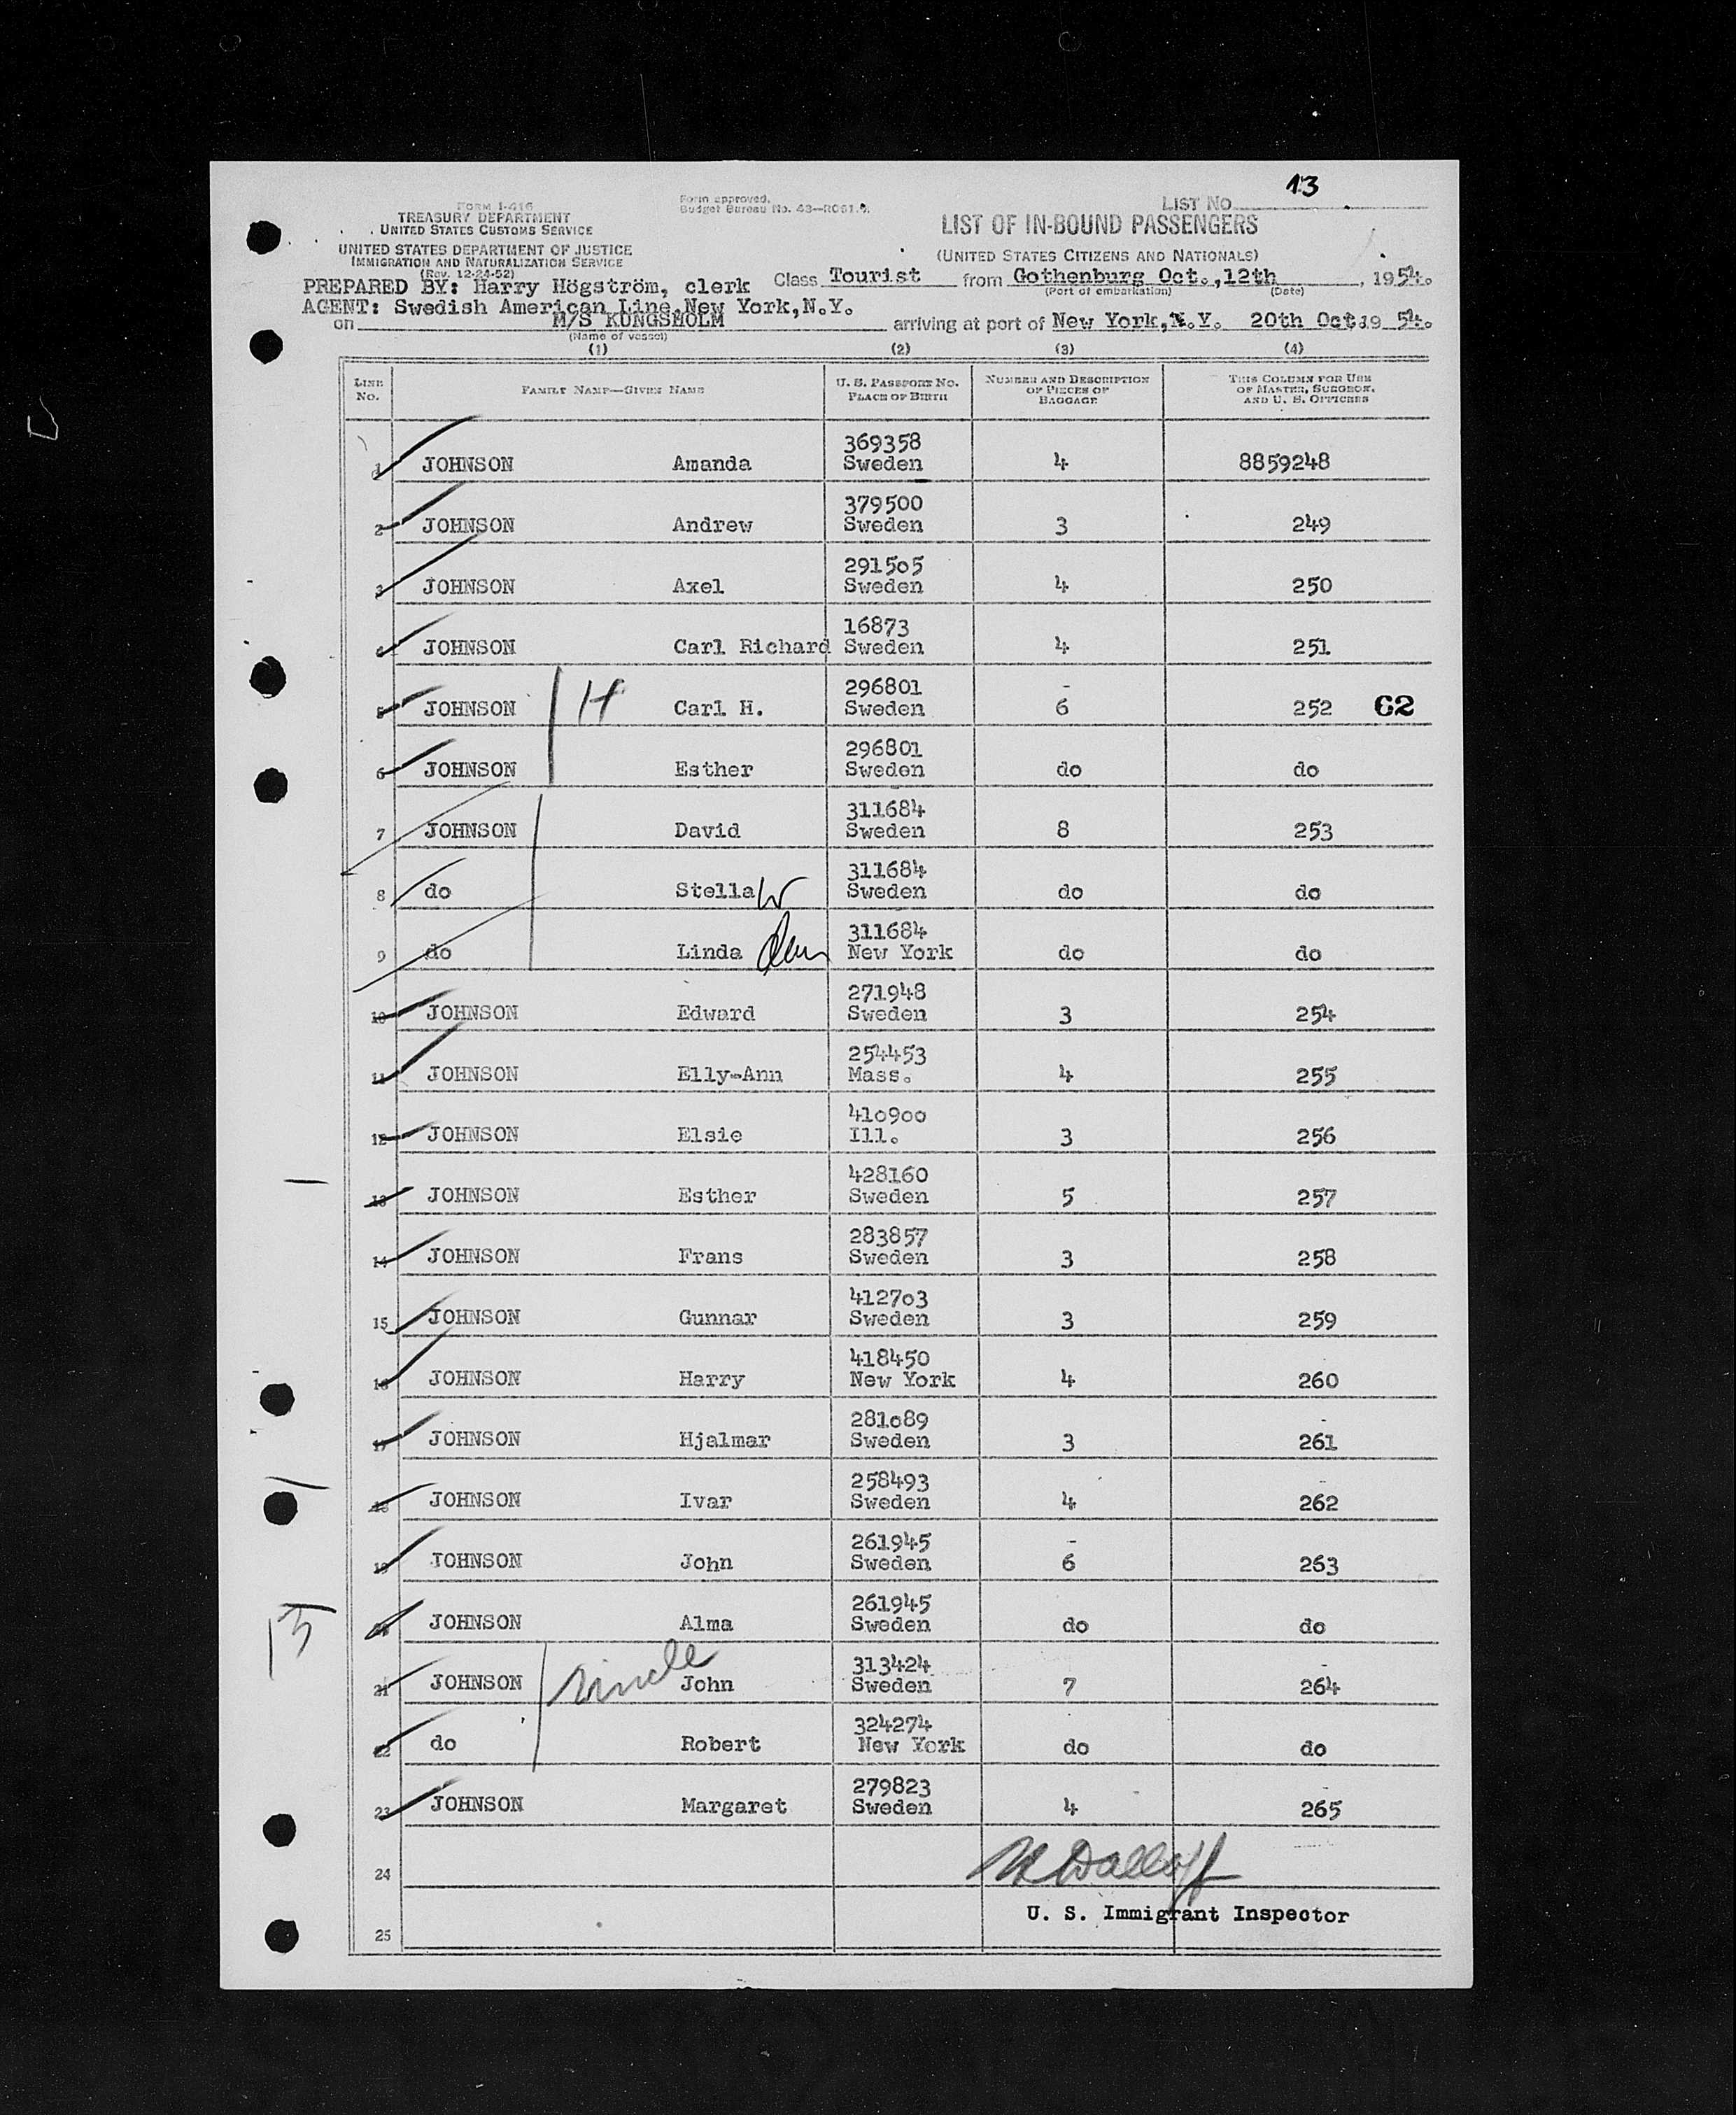 13
FORM I-416
TREASURY DEPARTMENT
UNITED STATES CUSTOMS SERVICE
UNITED STATES DEPARTMENT OF JUSTICE
IMMIGRATION AND NATURALIZATION SERVICE
(Rev. 12-24-52)
Form approved.
Budget Bureau No. 43—R061.
LIST No.
LIST OF IN-BOUND PASSENGERS
(UNITED STATES CITIZENS AND NATIONALS)
PREPARED BY: Harry Högström, clerk
Class Tourist from Gothenburg Oct.,12th, 1954.
(Port of embarkation) (Date)
AGENT: Swedish American Line, New York,N.Y.
on M/S KUNGSHOLM arriving at port of New York,N.Y. 20th Oct.19 54.
(Name of vessel)
(1) (2) (3) (4)
LINE NO. FAMILY NAME—GIVEN NAME U. S. PASSPORT NO. PLACE OF BIRTH NUMBER AND DESCRIPTION OF PIECES OF BAGGAGE THIS COLUMN FOR USE OF MASTER, SURGEON, AND U. S. OFFICERS
369358
1 JOHNSON Amanda Sweden 4 8859248
379500
2 JOHNSON Andrew Sweden 3 249
291505
3 JOHNSON Axel Sweden 4 250
16873
4 JOHNSON Carl Richard Sweden 4 251
296801
5 JOHNSON H Carl H. Sweden 6 252 62
296801
6 JOHNSON Esther Sweden do do
311684
7 JOHNSON David Sweden 8 253
311684
8 do Stella W Sweden do do
311684
9 do Linda New York do do
271948
10 JOHNSON Edward Sweden 3 254
254453
11 JOHNSON Elly-Ann Mass. 4 255
410900
12 JOHNSON Elsie Ill. 3 256
428160
13 JOHNSON Esther Sweden 5 257
283857
14 JOHNSON Frans Sweden 3 258
412703
15 JOHNSON Gunnar Sweden 3 259
418450
16 JOHNSON Harry New York 4 260
281089
17 JOHNSON Hjalmar Sweden 3 261
258493
18 JOHNSON Ivar Sweden 4 262
261945
19 JOHNSON John Sweden 6 263
261945
20 JOHNSON Alma Sweden do do
313424
21 JOHNSON uncle John Sweden 7 264
324274
22 do Robert New York do do
279823
23 JOHNSON Margaret Sweden 4 265
24
U. S. Immigrant Inspector
25